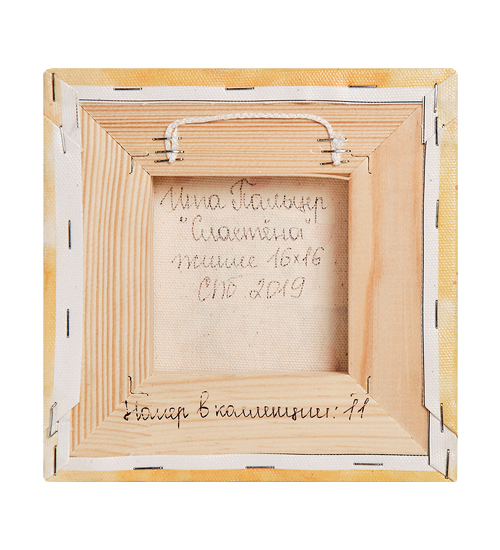 Ина Пальцер
"Сластёна"
холст 16х16
СПб 2019
Номер в коллекции: 11